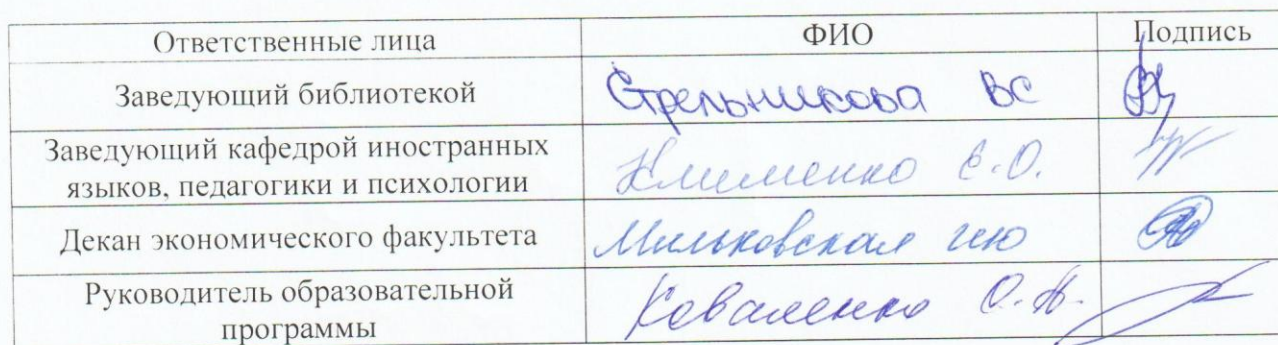 Ответственные лица ФИО Подпись
Заведующий библиотекой Стрельникова ВС
Заведующий кафедрой иностранных
языков, педагогики и психологии Клименко Е.О.
Декан экономического факультета Мильковская ИЮ
Руководитель образовательной
программы Коваленко О.Н.